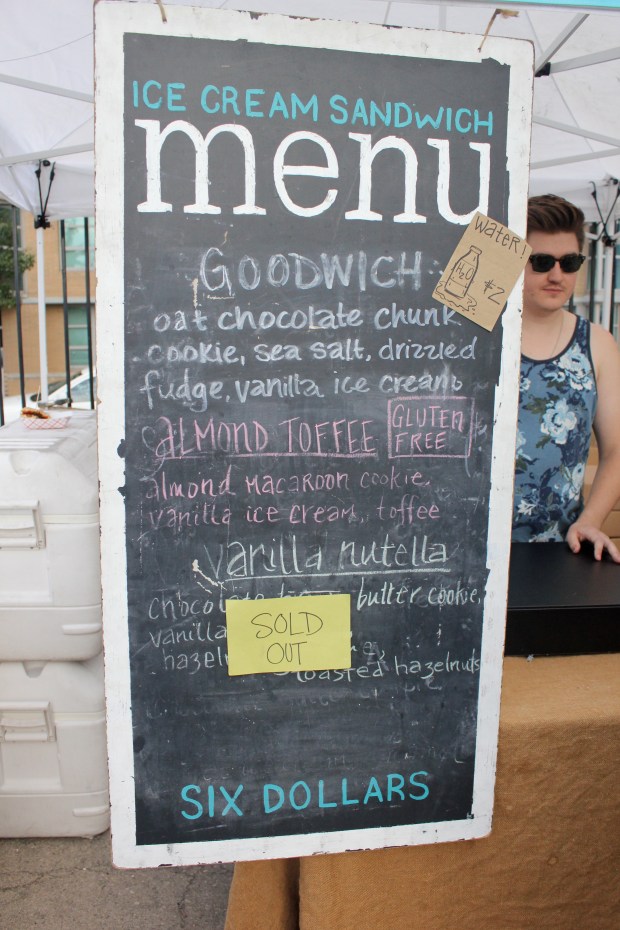 ICE CREAM SANDWICH
menu
water!
H2O
$2
GOODWICH
oat chocolate chunk
cookie, sea salt, drizzled
fudge, vanilla ice cream
ALMOND TOFFEE
GLUTEN
FREE
almond macaroon cookie,
vanilla ice cream, toffee
vanilla nutella
butter cookie,
vanilla
SOLD
OUT
toasted hazelnuts
SIX DOLLARS